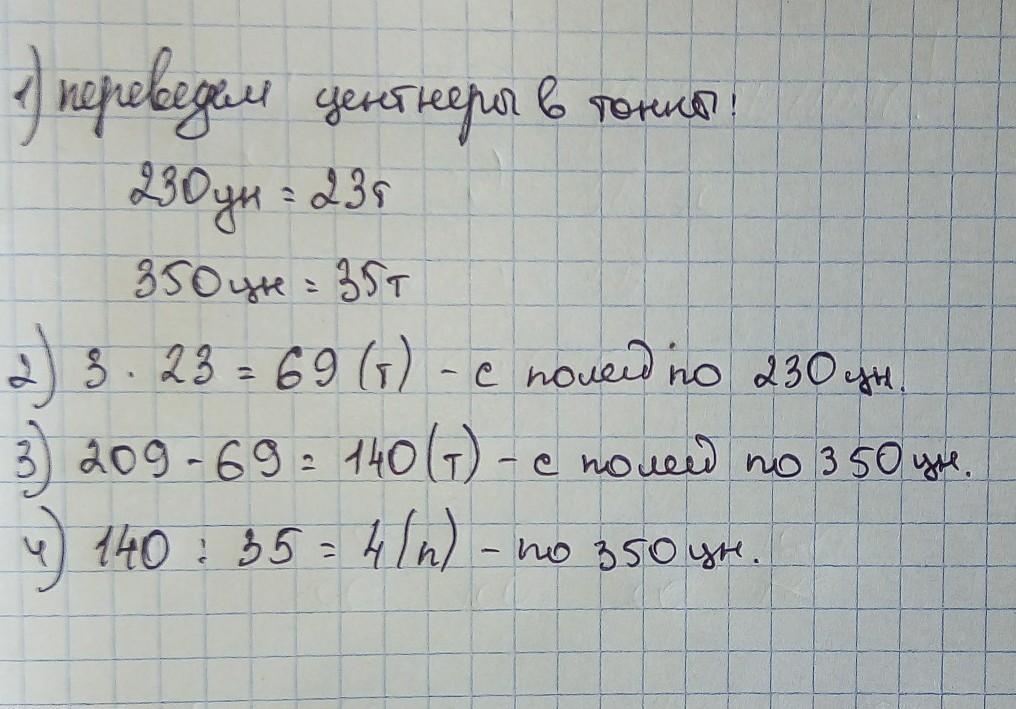 1) переведем центнеры в тонны!
230 цн = 23т
350 цн = 35т
2) 3 · 23 = 69 (т) - с полей по 230 цн.
3) 209 - 69 = 140 (т) - с полей по 350 цн.
4) 140 : 35 = 4 (п) - по 350 цн.